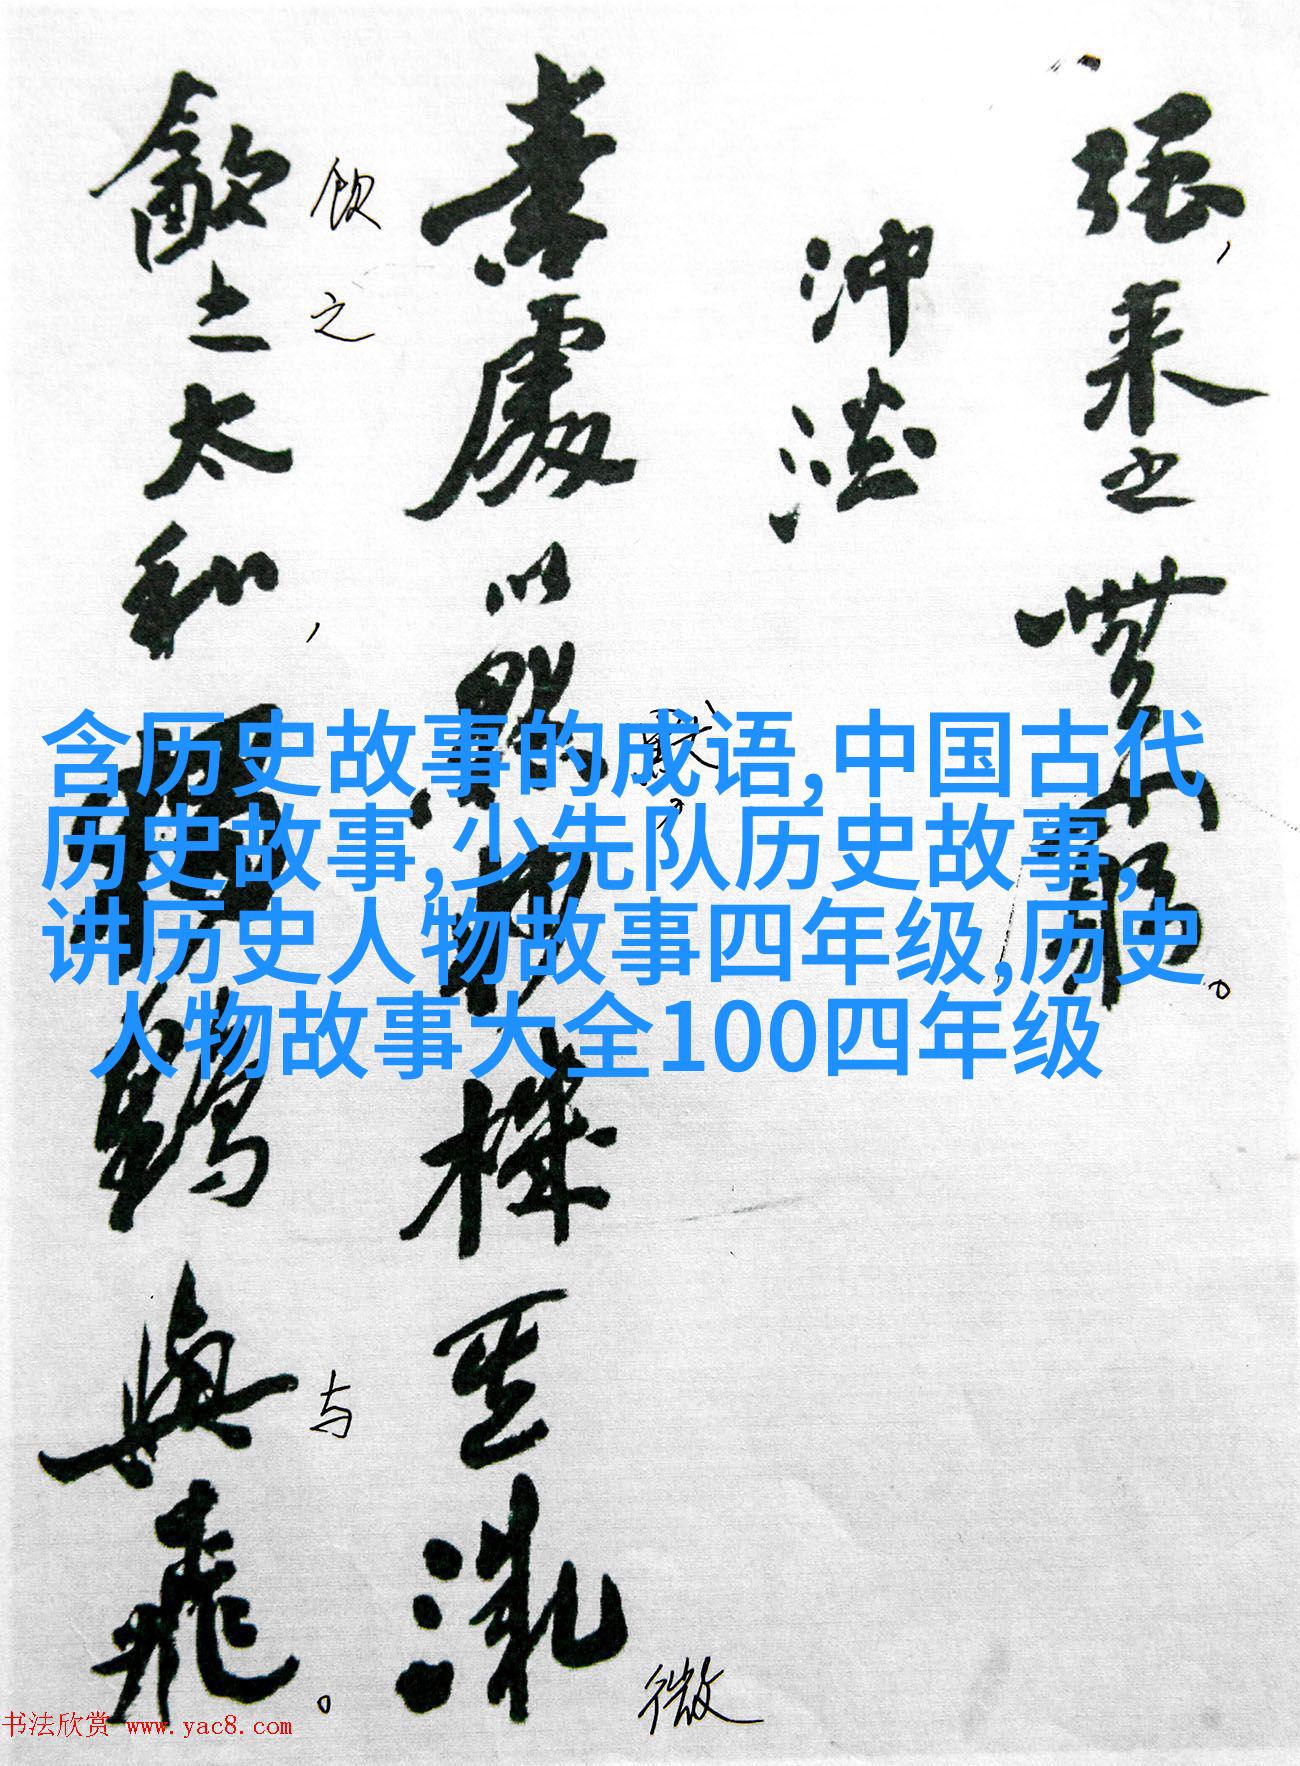 强，来之無窮。
冲淡
素處以默妙機其微
默。
微
飲之太和，獨鶴與飛。
饮之
与
含历史故事的成语,中国古代
历史故事,少先队历史故事,
讲历史人物故事四年级,历史
人物故事大全100四年级
书法欣赏 www.yac8.com